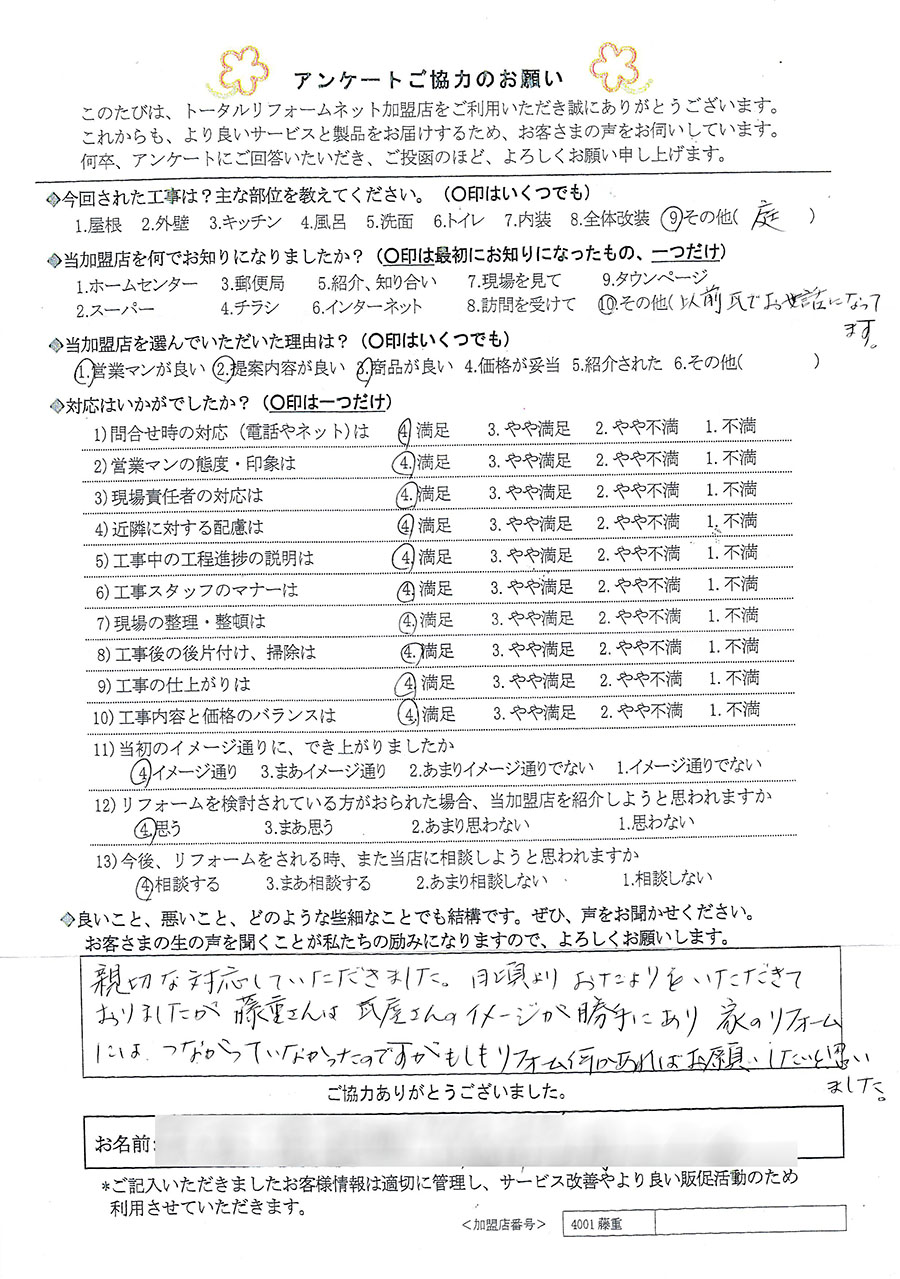 アンケートご協力のお願い
このたびは、トータルリフォームネット加盟店をご利用いただき誠にありがとうございます。
これからも、より良いサービスと製品をお届けするため、お客さまの声をお伺いしています。
何卒、アンケートにご回答いたいだき、ご投函のほど、よろしくお願い申し上げます。
◆今回された工事は？主な部位を教えてください。（〇印はいくつでも）
1.屋根 2.外壁 3.キッチン 4.風呂 5.洗面 6.トイレ 7.内装 8.全体改装 ⑨その他( 庭 )
◆当加盟店を何でお知りになりましたか？（〇印は最初にお知りになったもの、一つだけ）
1.ホームセンター 3.郵便局 5.紹介、知り合い 7.現場を見て 9.タウンページ
2.スーパー 4.チラシ 6.インターネット 8.訪問を受けて ⑩その他( 以前瓦でお世話になって
ます。
◆当加盟店を選んでいただいた理由は？（〇印はいくつでも）
①営業マンが良い ②提案内容が良い ③商品が良い 4.価格が妥当 5.紹介された 6.その他( )
◆対応はいかがでしたか？（〇印は一つだけ）
1)問合せ時の対応（電話やネット）は ④満足 3.やや満足 2.やや不満 1.不満
2)営業マンの態度・印象は ④満足 3.やや満足 2.やや不満 1.不満
3)現場責任者の対応は ④満足 3.やや満足 2.やや不満 1.不満
4)近隣に対する配慮は ④満足 3.やや満足 2.やや不満 1.不満
5)工事中の工程進捗の説明は ④満足 3.やや満足 2.やや不満 1.不満
6)工事スタッフのマナーは ④満足 3.やや満足 2.やや不満 1.不満
7)現場の整理・整頓は ④満足 3.やや満足 2.やや不満 1.不満
8)工事後の後片付け、掃除は ④満足 3.やや満足 2.やや不満 1.不満
9)工事の仕上がりは ④満足 3.やや満足 2.やや不満 1.不満
10)工事内容と価格のバランスは ④満足 3.やや満足 2.やや不満 1.不満
11)当初のイメージ通りに、でき上がりましたか
④イメージ通り 3.まあイメージ通り 2.あまりイメージ通りでない 1.イメージ通りでない
12)リフォームを検討されている方がおられた場合、当加盟店を紹介しようと思われますか
④思う 3.まあ思う 2.あまり思わない 1.思わない
13)今後、リフォームをされる時、また当店に相談しようと思われますか
④相談する 3.まあ相談する 2.あまり相談しない 1.相談しない
◆良いこと、悪いこと、どのような些細なことでも結構です。ぜひ、声をお聞かせください。
お客さまの生の声を聞くことが私たちの励みになりますので、よろしくお願いします。
親切な対応していただきました。日頃より おたよりをいただきて
おりましたが 藤重さんは 瓦屋さんのイメージが 勝手にあり 家のリフォーム
には つながっていなかったのですが もしも リフォーム何かあればお願いしたいと思い
ました。
ご協力ありがとうございました。
お名前:
*ご記入いただきましたお客様情報は適切に管理し、サービス改善やより良い販促活動のため
利用させていただきます。
＜加盟店番号＞ 4001藤重